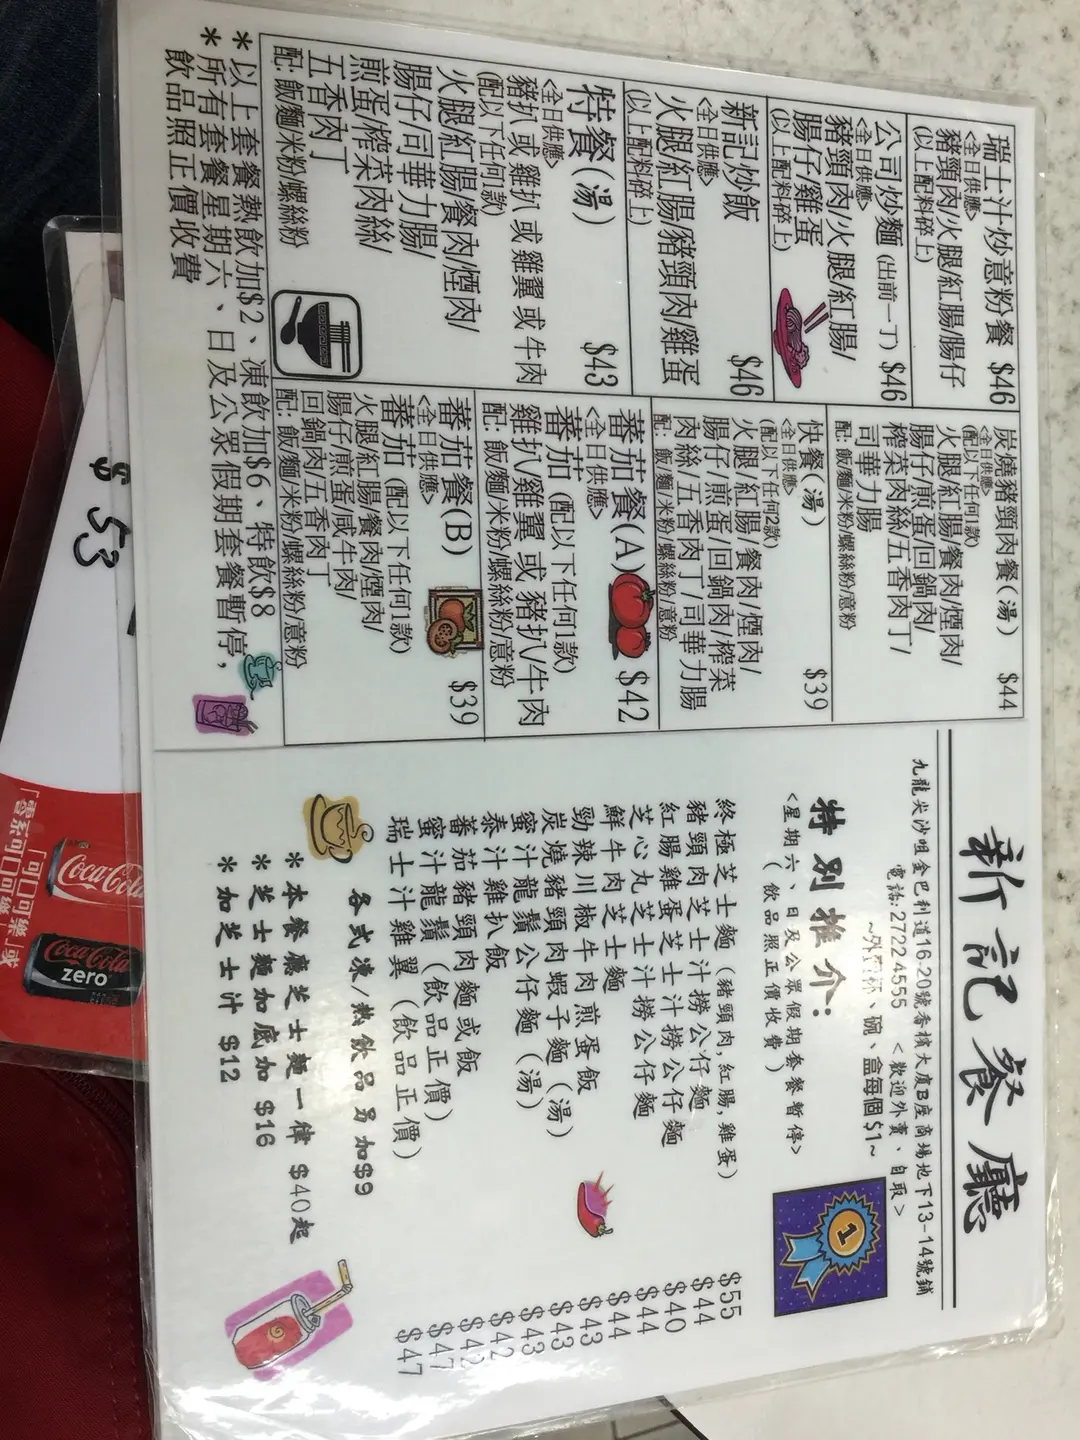 新記餐廳
九龍尖沙咀金巴利道16-20號香檳大廈B座商場地下13-14號鋪
電話: 2722 4555 <歡迎外賣、自取>
~外賣杯、碗、盒每個$1~
特別推介:
<星期六、日及公眾假期套餐暫停>
(飲品照正價收費)
終極芝士麵 (豬頸肉,紅腸,雞蛋) $55
豬頸肉芝士汁撈公仔麵 $44
紅腸雞蛋芝士汁撈公仔麵 $40
芝心丸芝士汁撈公仔麵 $44
鮮牛肉芝士麵 $44
勁辣川椒牛肉煎蛋飯 $43
炭燒豬頸肉蝦子麵 (湯) $43
蜜汁龍鬚公仔麵 (湯) $43
泰汁雞扒飯 $42
蕃茄豬頸肉麵或飯
蜜汁龍鬚 (飲品正價) $47
瑞士汁雞翼 (飲品正價) $47
各式凍/熱飲品另加$9
* 本餐廳芝士麵一律 $40起
* 芝士麵加底加 $16
* 加芝士汁 $12
瑞士汁炒意粉餐 $46
<全日供應>
豬頸肉/火腿/紅腸/腸仔
(以上配料碎上)
公司炒麵 (出前一丁) $46
<全日供應>
豬頸肉/火腿/紅腸/
腸仔/雞蛋
(以上配料碎上)
新記炒飯 $46
<全日供應>
火腿/紅腸/豬頸肉/雞蛋
(以上配料碎上)
特餐 (湯) $43
<全日供應>
豬扒 或 雞扒 或 雞翼 或 牛肉
(配以下任何1款)
火腿/紅腸/餐肉/煙肉/
腸仔/司華力腸/
煎蛋/榨菜肉絲/
五香肉丁
配: 飯/麵/米粉/螺絲粉
炭燒豬頸肉餐 (湯) $44
<全日供應>
(配以下任何1款)
火腿/紅腸/餐肉/煙肉/
腸仔/煎蛋/回鍋肉/
榨菜肉絲/五香肉丁/
司華力腸
配: 飯/麵/米粉/螺絲粉/意粉
快餐 (湯) $39
<全日供應>
(配以下任何2款)
火腿/紅腸/餐肉/煙肉/
腸仔/煎蛋/回鍋肉/榨菜
肉絲/五香肉丁/司華力腸
配: 飯/麵/米粉/螺絲粉/意粉
蕃茄餐(A) $42
<全日供應>
蕃茄 (配以下任何1款)
雞扒/雞翼 或 豬扒/牛肉
配: 飯/麵/米粉/螺絲粉/意粉
蕃茄餐(B) $39
<全日供應>
蕃茄 (配以下任何1款)
火腿/紅腸/餐肉/煙肉/
腸仔/煎蛋/咸牛肉/
回鍋肉/五香肉丁
配: 飯/麵/米粉/螺絲粉/意粉
* 以上套餐熱飲加$2、凍飲加$6、特飲$8
* 所有套餐星期六、日及公眾假期套餐暫停,
飲品照正價收費
1
$ 53
Coca-Cola
Coca-Cola
zero